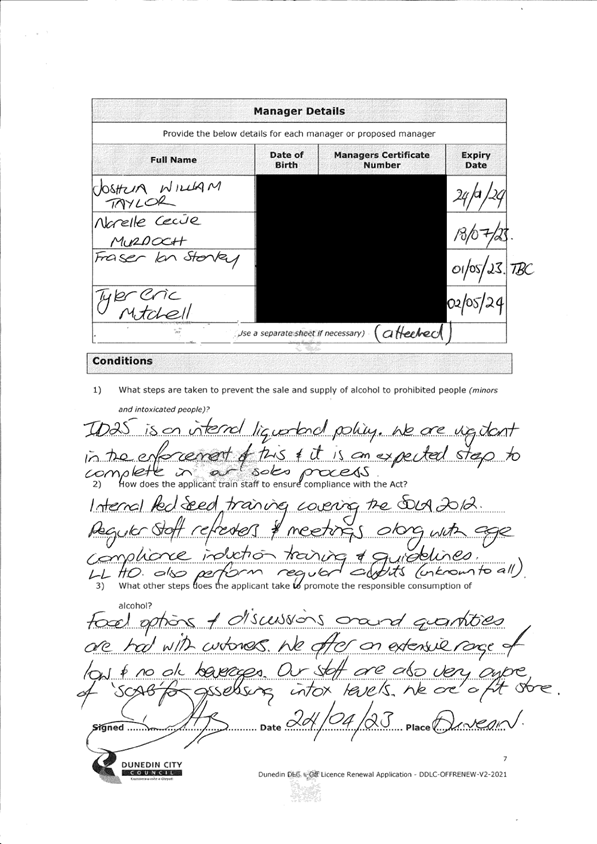 Manager Details
Provide the below details for each manager or proposed manager
Full Name
Date of Birth
Managers Certificate Number
Expiry Date
JOSHUA WILLIAM
TAYLOR
24/ /24
Norelle Cecile
MURDOCH
18/07/23.
Fraser Ian
01/05/23. TBC
Tyler Eric
Mitchell
02/05/24
Use a separate sheet if necessary) (attached)
Conditions
1) What steps are taken to prevent the sale and supply of alcohol to prohibited people (minors
and intoxicated people)?
ID25 is an internal liquorland policy. We are vigilant
in the enforcement of this & it is an expected step to
complete in our sales process.
2) How does the applicant train staff to ensure compliance with the Act?
Internal Red Seed training covering the SSLA 2012.
Regular Staff refreshers & meetings along with age
compliance induction training & guidelines.
LL HO. also perform regular audits (unknown to all).
3) What other steps does the applicant take to promote the responsible consumption of
alcohol?
Food options & discussions around quantities
are had with customers. We offer an extensive range of
low & no alc beverages. Our staff are also very aware
of 'SCAB' for assessing intox levels. We are a fit store.
Signed Date 24/04/23 Place Dunedin.
7
DUNEDIN CITY
COUNCIL
Dunedin DLC Off Licence Renewal Application - DDLC-OFFRENEW-V2-2021